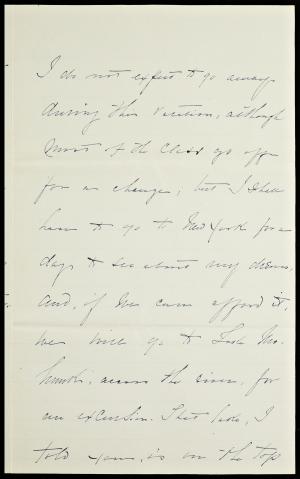 I do not expect to go away
during this vacation, although
most of the class go off
for a change; but I shall
have to go to New York for a
day to see about my dress,
and, if we can afford it,
we will go to Lake Mo-
honk, across the river, for
an excursion. That lake, I
told you, is on the top